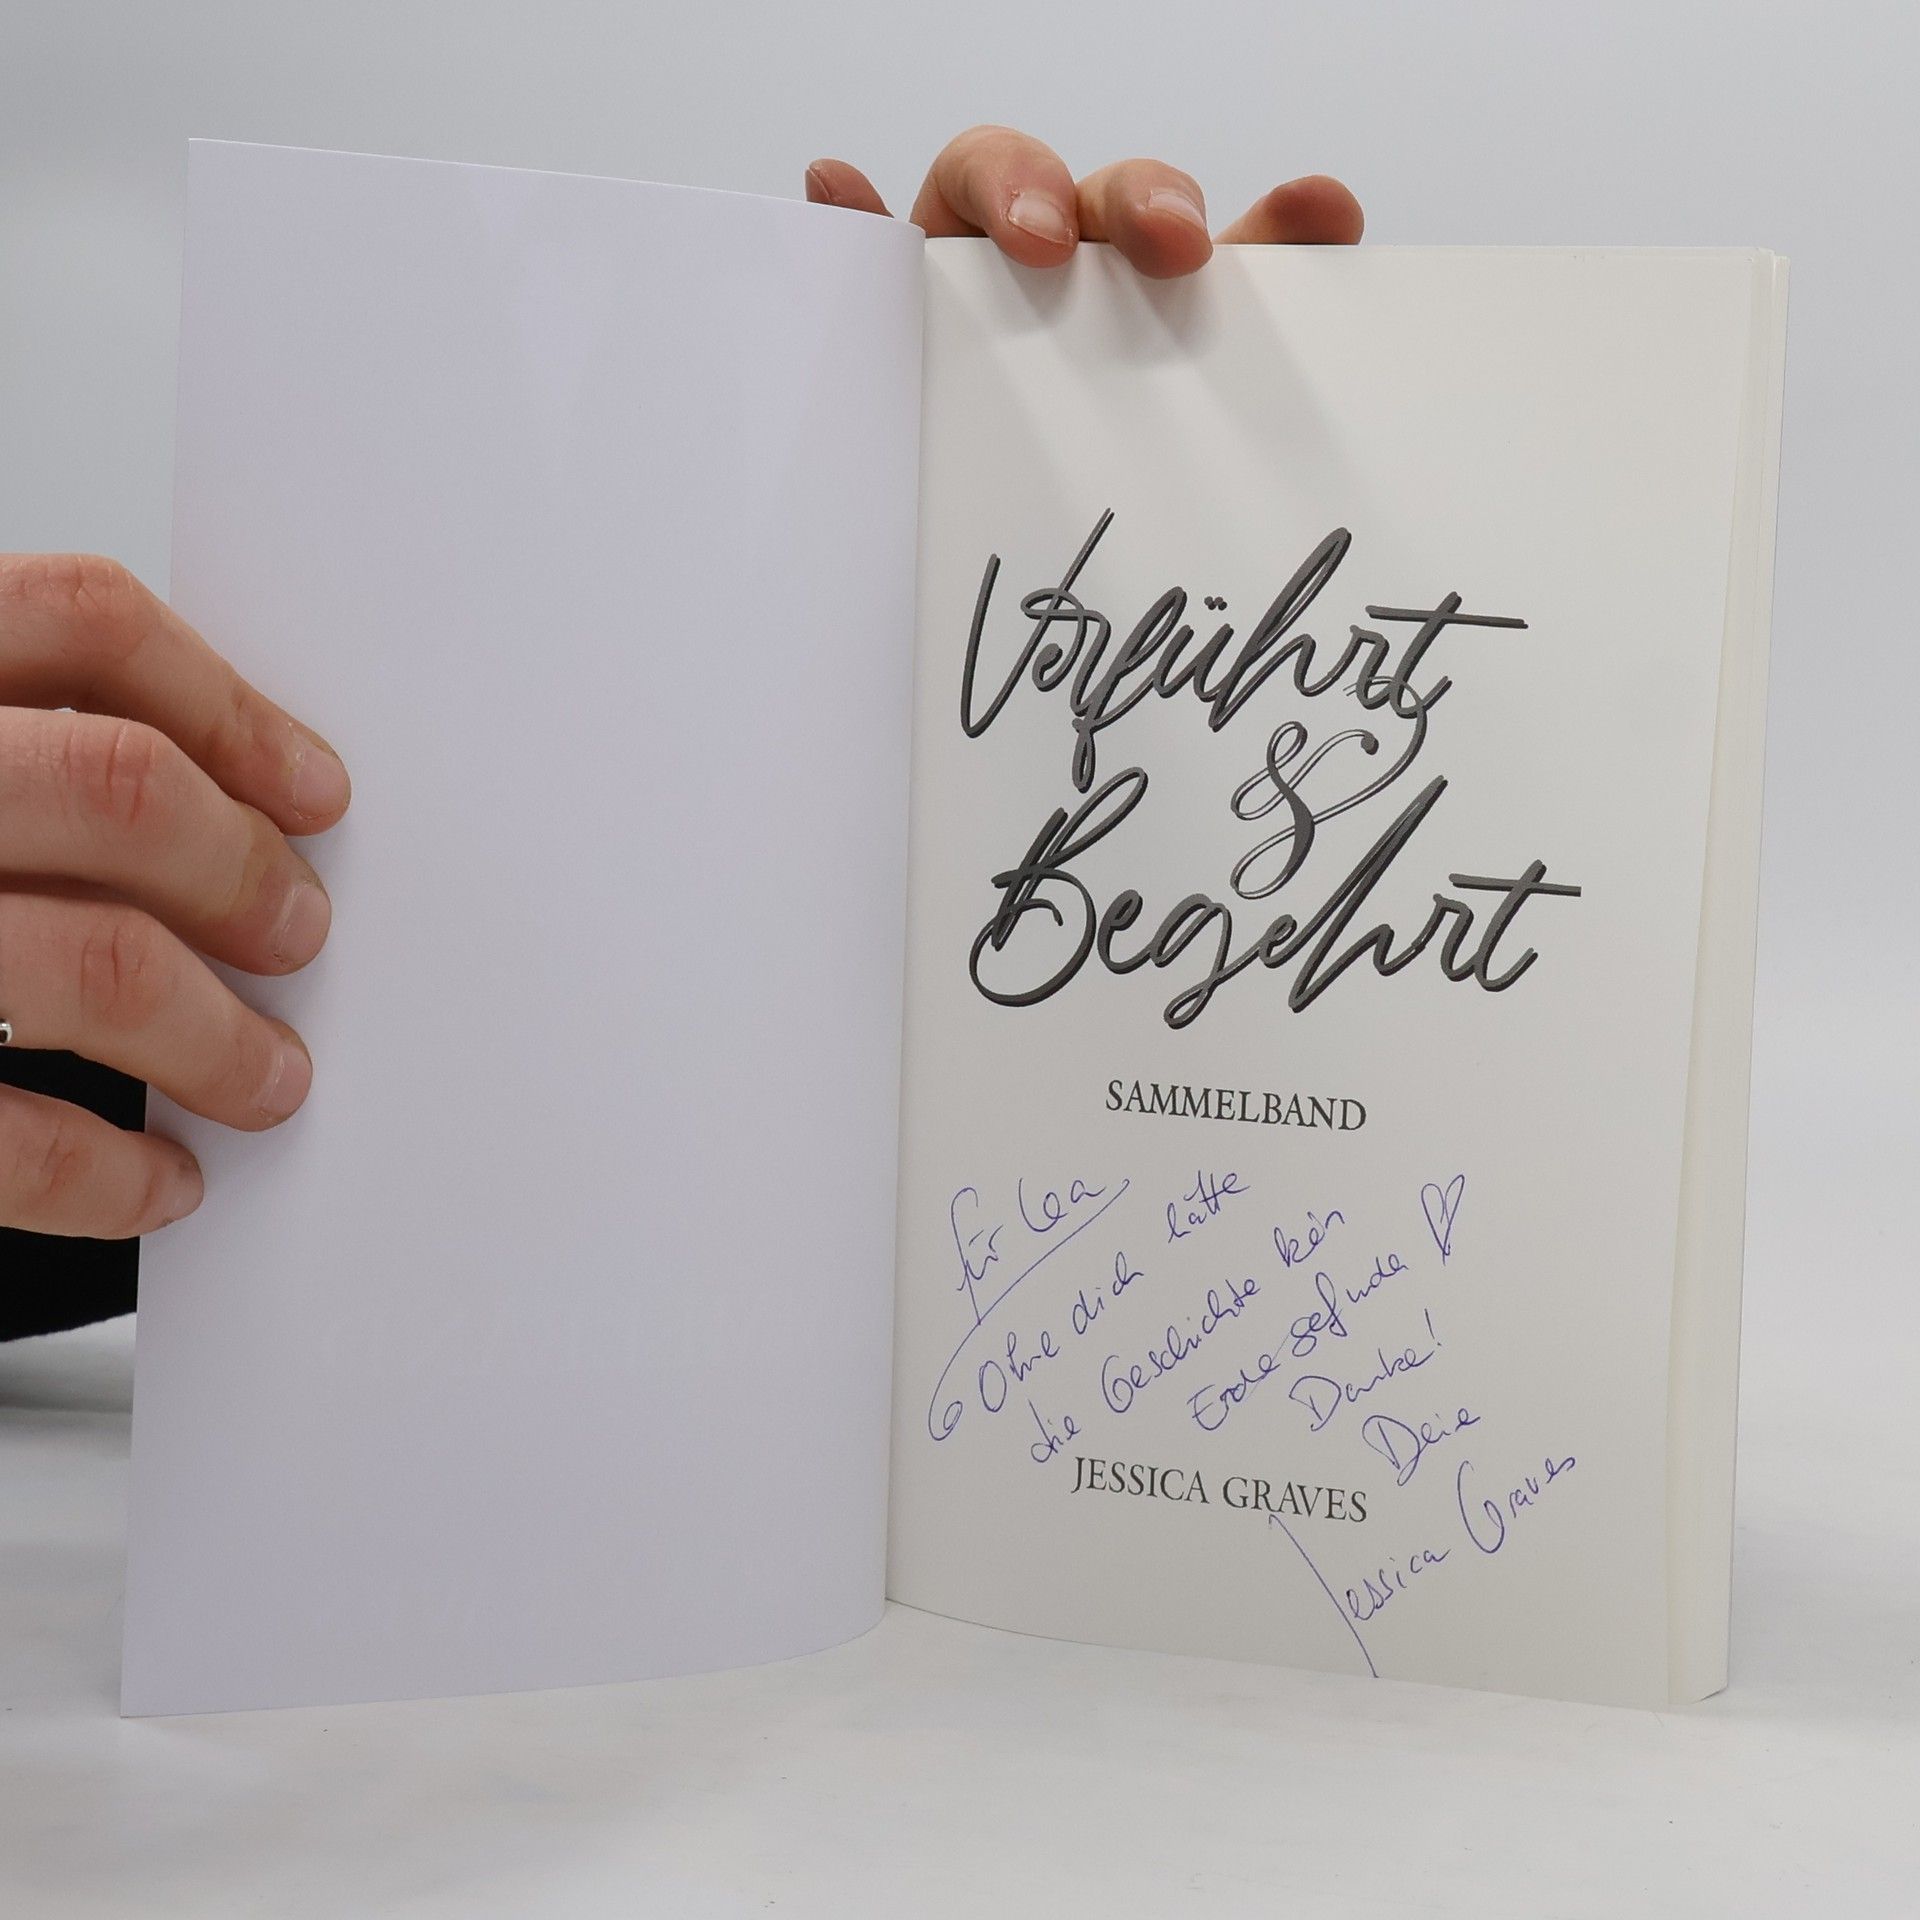 Verführt
&
Begehrt
SAMMELBAND
für Lea
Ohne dich hätte
die Geschichte kein
Ende gefunden
Danke!
Deine
JESSICA GRAVES
Jessica Graves